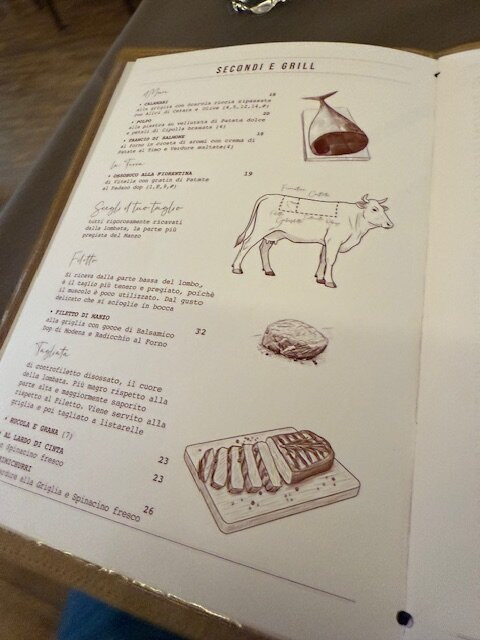 SECONDI E GRILL
Il Mare
• CALAMARI 18
alla griglia con Scarola riccia ripassata
con Alici di Cetara e Olive (4,9,12,14,#)
• POLPO 20
alla piastra su vellutata di Patata dolce
e petali di Cipolla bramata (4)
• TRANCIO DI SALMONE 18
al forno in crosta di aromi con crema di
Patate al Timo e Verdure saltate(4)
la Terra
• OSSOBUCO ALLA FIORENTINA 19
di Vitella con gratin di Patate
al Padano dop (1,7,9,#)
Scegli il tuo taglio
tutti rigorosamente ricavati
dalla lombata, la parte più
pregiata del Manzo
Filetto
Costata
Filetto
Si ricava dalla parte bassa del lombo,
è il taglio più tenero e pregiato, poichè
il muscolo è poco utilizzato. Dal gusto
delicato che si scioglie in bocca
• FILETTO DI MANZO 32
alla griglia con gocce di Balsamico
Dop di Modena e Radicchio al Forno
Tagliata
di controfiletto disossato, il cuore
della lombata. Più magro rispetto alla
parte alta e maggiormente saporito
rispetto al Filetto. Viene servito alla
griglia e poi tagliato a listarelle
• RUCOLA E GRANA (7) 23
AL LARDO DI CINTA
e Spinacino fresco 23
IMICHURRI
erdure alla Griglia e Spinacino fresco 26